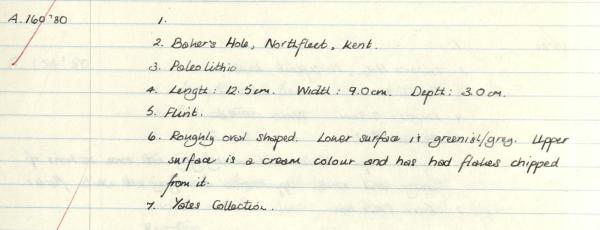 A.160'80 1.
2. Baker's Hole, Northfleet, Kent.
3. Paleolithic
4. Length: 12.5cm. Width: 9.0cm. Depth: 3.0cm.
5. Flint.
6. Roughly oval shaped. Lower surface is greenish/grey. Upper
surface is a cream colour and has had flakes chipped
from it.
7. Yates Collection.